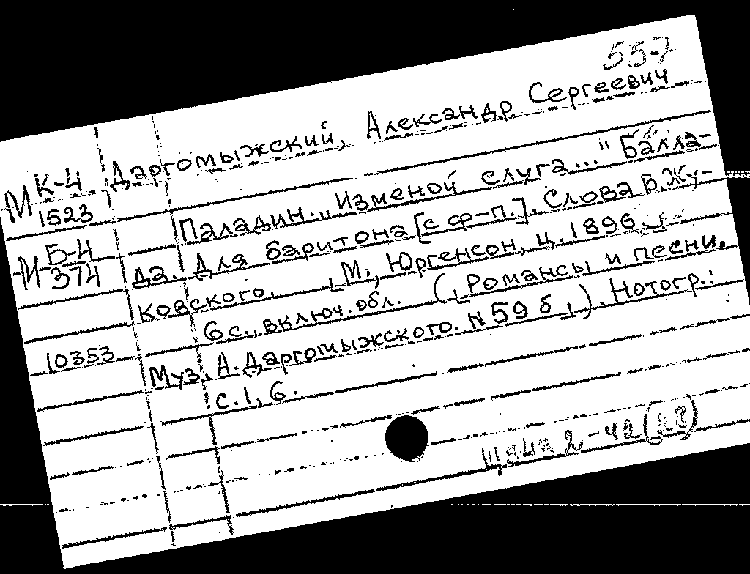 557
Даргомыжский, Александр Сергеевич
М К-4
1523
Паладин. „Изменой слуга..." Балла-
М Б-4
374
да. Для баритона [с ф-п.]. Слова В. Жу-
ковского. [М., Юргенсон, ц. 1896.]
6 с., включ. обл. ([Романсы и песни.
10353
Муз. А. Даргомыжского. № 59 б]). Нотогр.:
с. 1, 6.